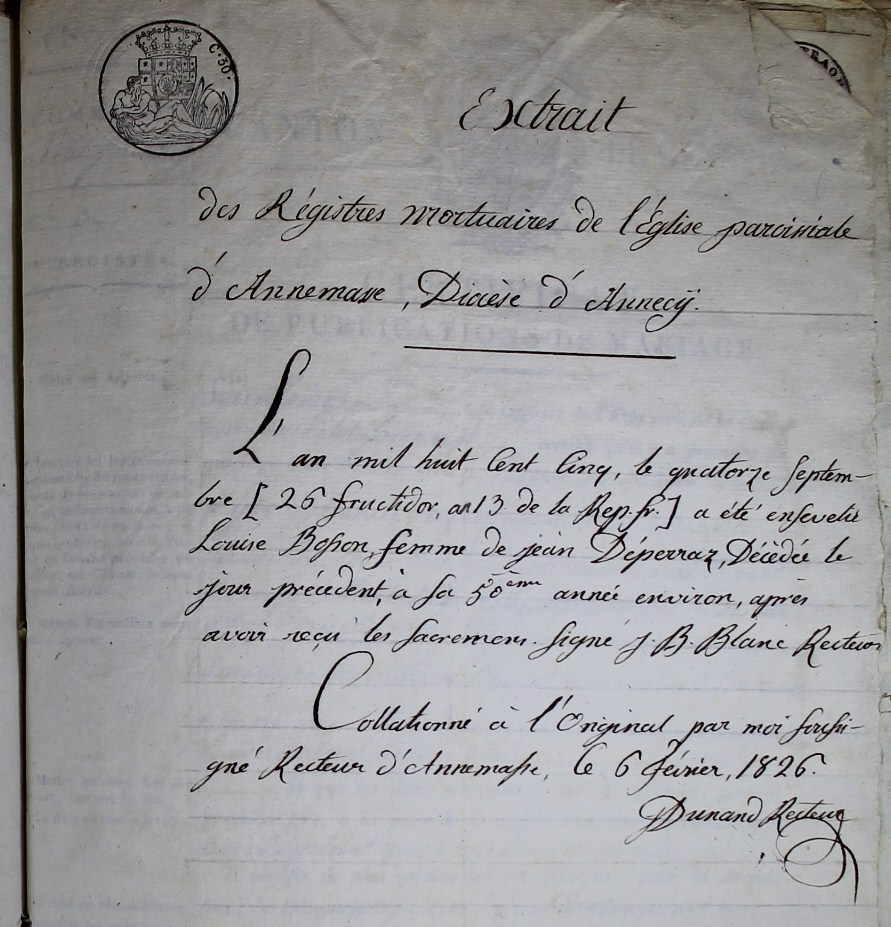 C. 30.
Extrait
des Régistres mortuaires de l'Église paroissiale
d'Annemasse, Diocèse d'Annecÿ.
L'an mil huit Cent Cinq, le quatorze Septem-
bre [26 fructidor, an 13 de la Rep. fr.] a été ensevelie
Louise Bosson, femme de jean Déperraz, Décédée le
jour précédent, à sa 50ème année environ, après
avoir reçu les sacremens. Signé J. B. Blanc Recteur
Collationné à l'Original par moi soussi-
gné Recteur d'Annemasse, le 6 févrïer, 1826.
Dunand Recteur